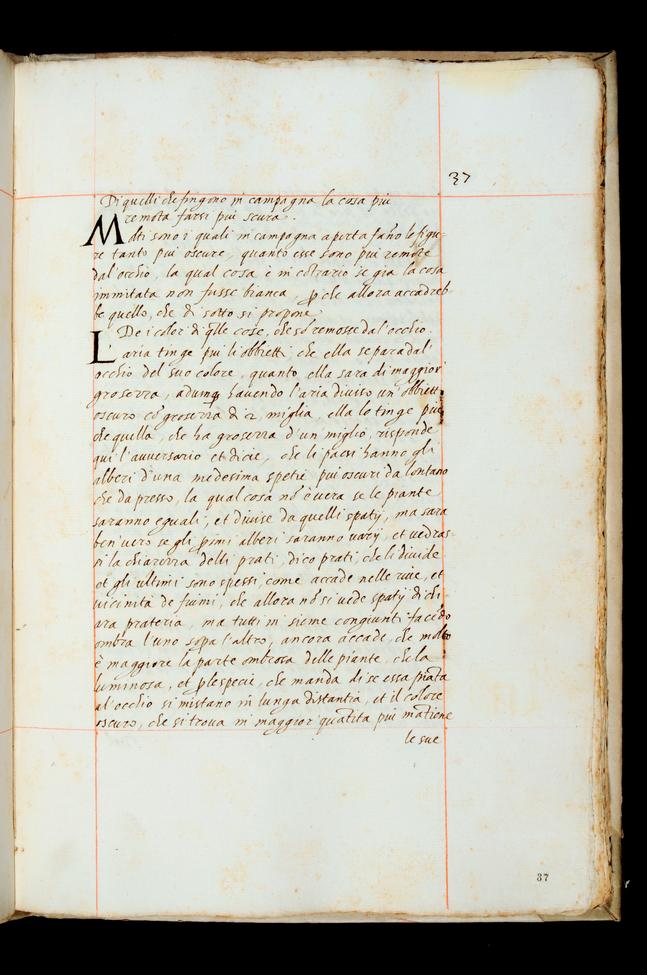 37
Di quelli che fingono in campagna la cosa piu
remota farsi piu scura.
Molti sono i quali in campagna aperta fano le figu-
re tanto piu oscure, quanto esse sono piu remote
dal'occhio, la qual cosa è in cōtrario se gia la cosa
immitata non fusse bianca, ꝑche allora accadreb-
be quello, che di sotto si propone.
De i color' di q̄lle cose, che sō remosse dal'occhio.
L'aria tinge piu li obbietti, che ella separa dal'
occhio del suo colore, quanto ella sara di maggior'
grosezza, adunq; havendo l'aria diviso un' obbietto
oscuro cō grosezza di 2, miglia, ella lo tinge piu,
che quella, che ha grosezza d'un miglio, risponde
qui l'auuersario et dicie, che li paesi hanno gli
alberi d'una medesima spetie piu oscuri da lontano
che da presso, la qual cosa nō è vera se le piante
saranno eguali, et divise da quelli spatij, ma sara
ben vero se gli primi alberi saranno varij, et vedras-
si la chiarezza delli prati, dico prati, che li divide
et gli ultimi sono spessi, come accade nelle rive, et
vicinità de fiumi, che allora nō si vede spatij di chi-
ara prateria, ma tutti in sieme congiunti facēdo
ombra l'uno sopa l'altro, ancora accade, che molto
è maggiore la parte ombrosa delle piante, che la
luminosa, et ꝑ le specie, che manda di se essa piāta
al'occhio si mistano in lunga distantia, et il colore
oscuro, che si trova in maggior' quātita piu mātiene
le sue
87